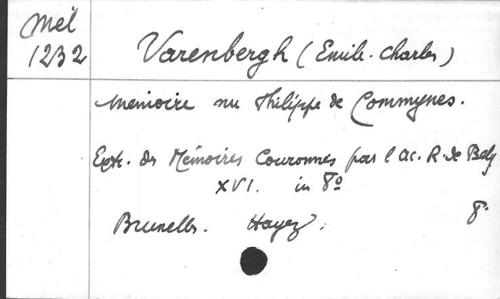 Mél
1232
Varenbergh (Emile-Charles)
Mémoire sur Philippe de Commynes.
Extr. des Mémoires Couronnés par l'Ac. R. de Belg
XVI. in 8º
Bruxelles. Hayez.
8º